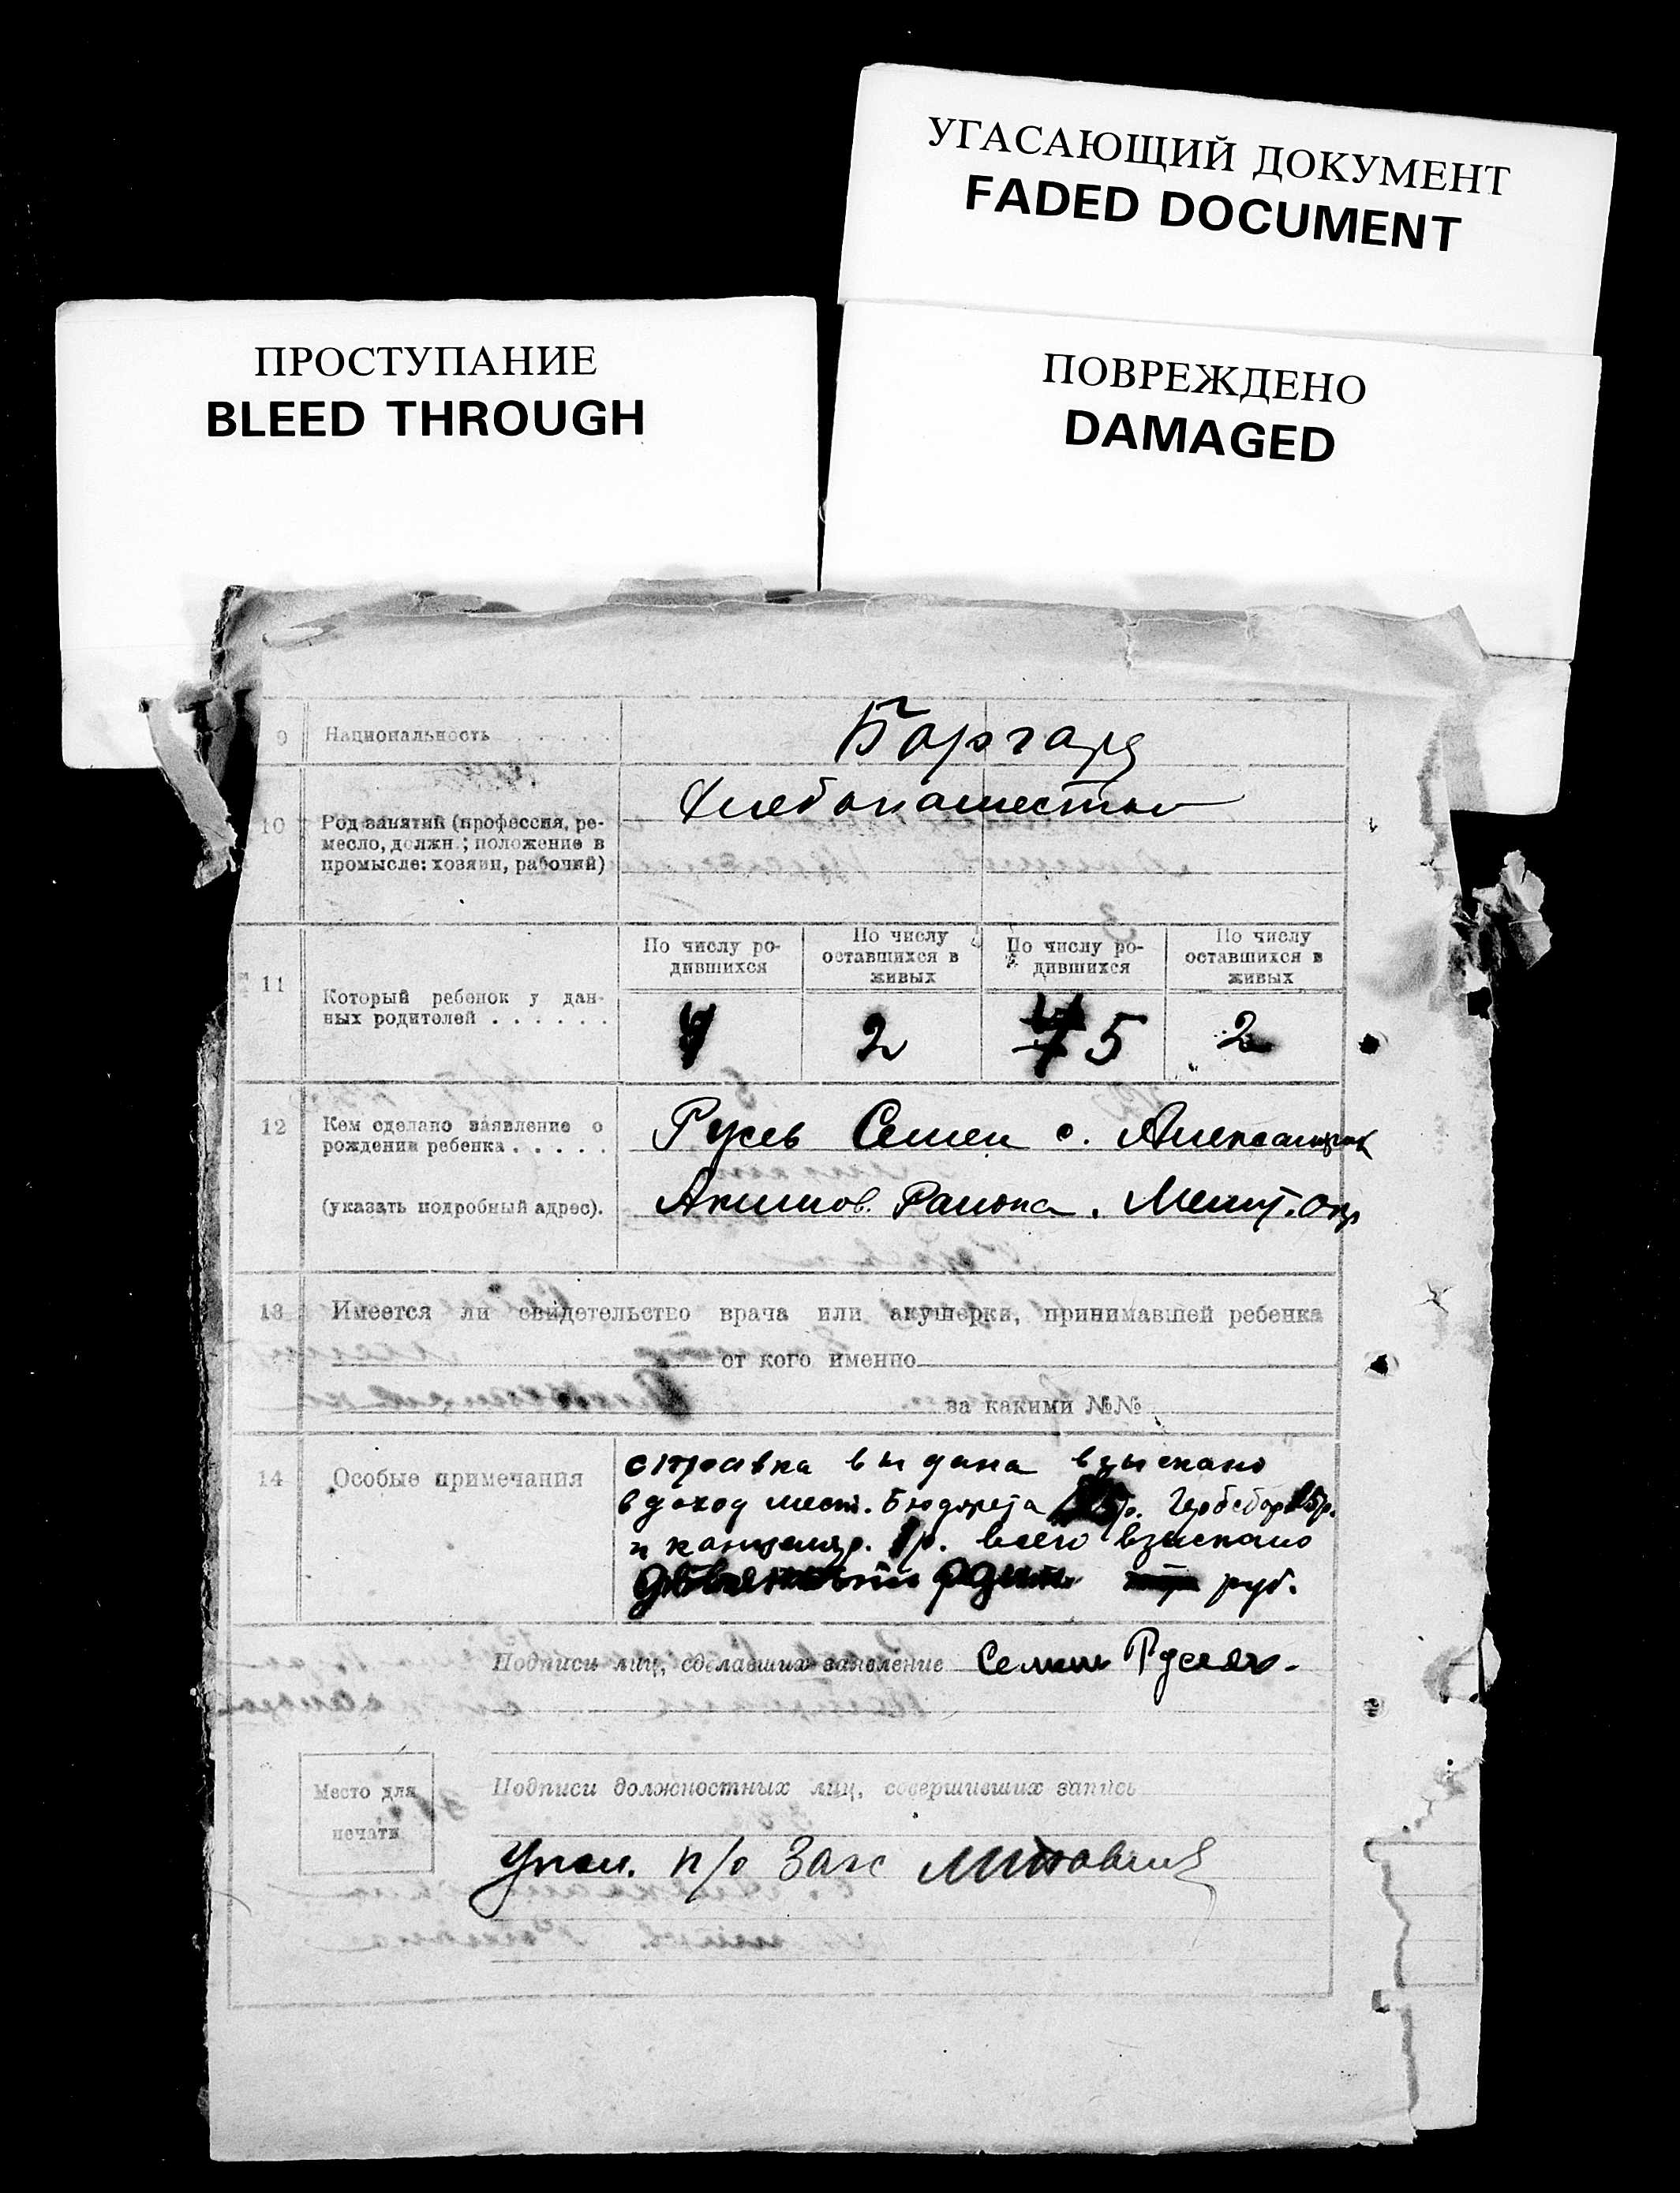 УГАСАЮЩИЙ ДОКУМЕНТ
FADED DOCUMENT
ПРОСТУПАНИЕ
BLEED THROUGH
ПОВРЕЖДЕНО
DAMAGED
9 Национальность . . . . .
10 Род занятий (профессия, ре-
месло, должн.; положение в
промысле: хозяин, рабочий)
11 Который ребенок у дан-
ных родителей . . . . . .
По числу ро-
дившихся
По числу
оставшихся в
живых
По числу ро-
дившихся
По числу
оставшихся в
живых
2 5 2
12 Кем сделано заявление о
рождении ребенка . . . . .
(указать подробный адрес).
Русев Семен с.
Акимов. Района. Мелит. Окр
13 Имеется ли свидетельство врача или акушерки, принимавшей ребенка
от кого именно
за какими №№
14 Особые примечания
справка выдана взыскано
в доход мест. Бюджета
и канцеляр. 1р. всего взыскано
руб.
Подписи лиц, сделавших заявление Семен Русев.
Место для
печати
Подписи должностных лиц, совершивших запись
п/о Загс